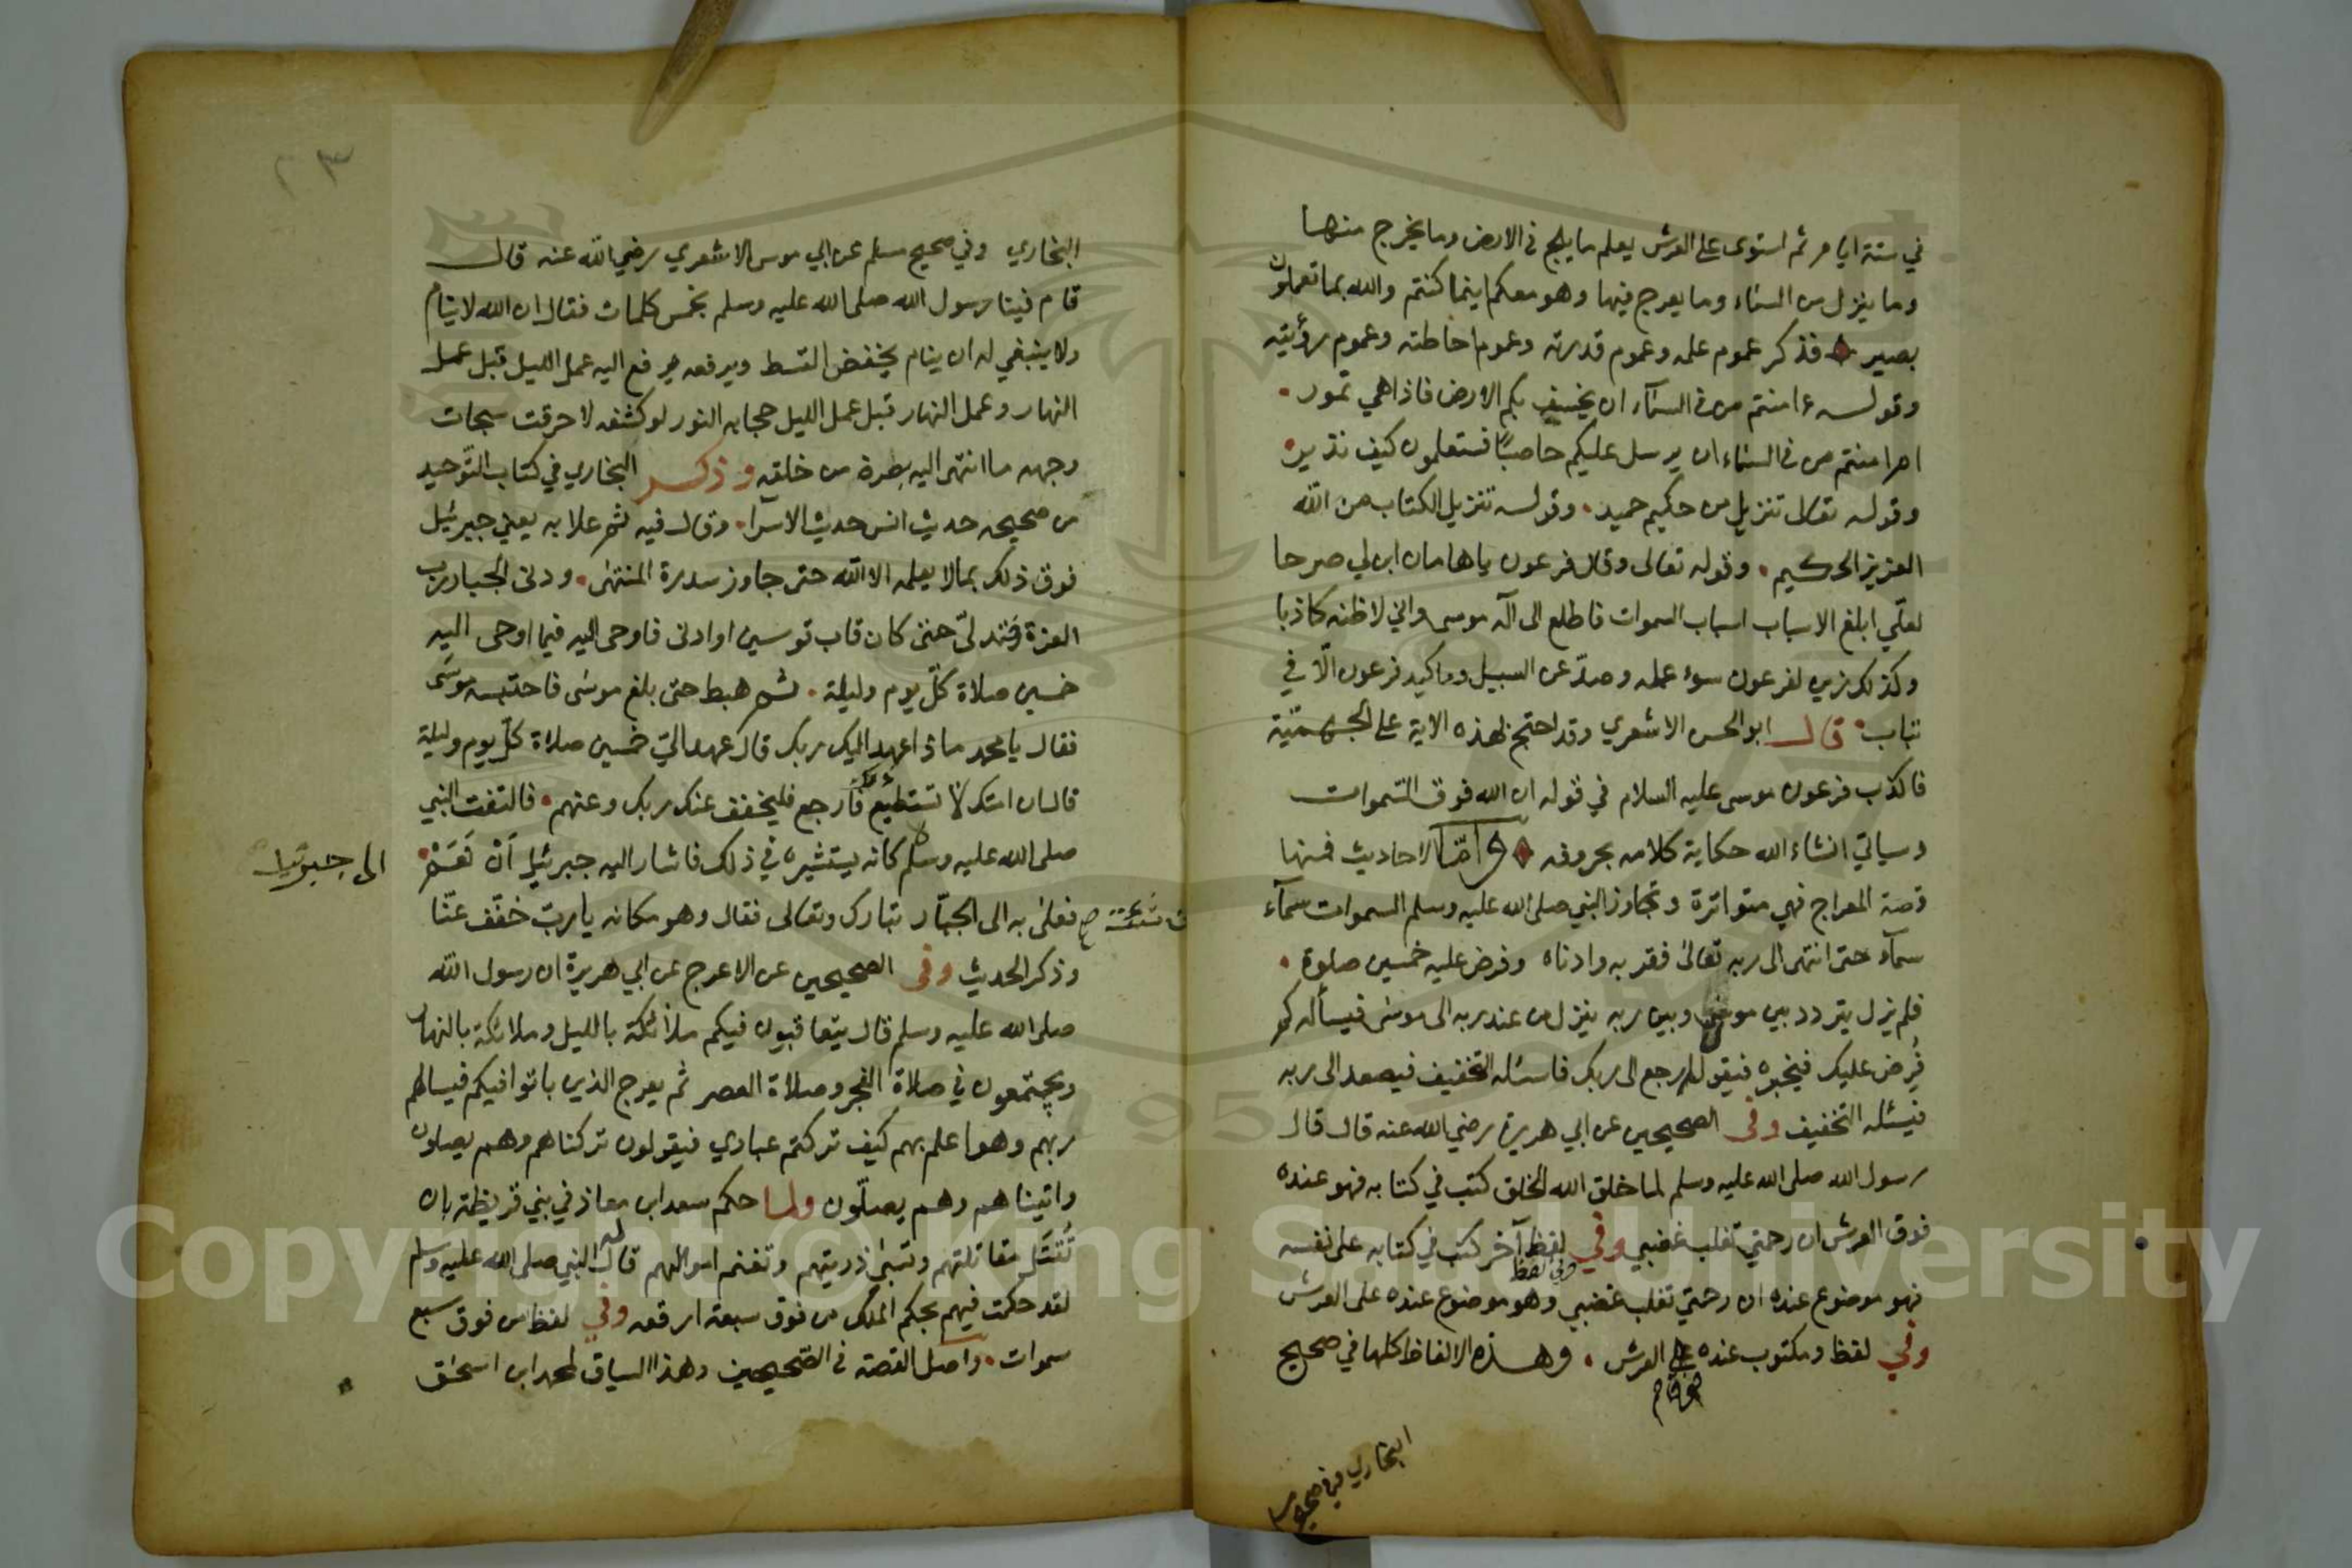 في ستة ايام ثم استوى على العرش يعلم ما يلج في الارض وما يخرج منها
وما ينزل من السماء وما يعرج فيها وهو معكم اينما كنتم والله بما تعملون
بصير فذكر عموم علمه وعموم قدرته وعموم احاطته وعموم رؤيته
وقوله ءامنتم من في السمآء ان يخسف بكم الارض فاذا هي تمور
ام امنتم من في السماء ان يرسل عليكم حاصبًا فستعلمون كيف نذير
وقوله تعالى تنزيل من حكيم حميد وقوله تنزيل الكتاب من الله
العزيز الحكيم وقوله تعالى وقال فرعون ياهامان ابن لي صرحا
لعلّي ابلغ الاسباب اسباب السموات فاطلع الى اله موسى واني لاظنه كاذبا
وكذلك زين لفرعون سوء عمله وصدّ عن السبيل وما كيد فرعون الّا في
تباب قال ابو الحسن الاشعري وقد احتج بهذه الاية على الجهميّة
فاكذب فرعون موسى عليه السلام في قوله ان الله فوق السّموات
وسياتي انشاء الله حكاية كلامه بحروفه وامّا الاحاديث فمنها
قصة المعراج فهي متواترة وتجاوز النبي صلى الله عليه وسلم السموات سمآء
سمآء حتى انتهى الى ربه تعالى فقربه وادناه وفرض عليه خمسين صلوة
فلم يزل يتردد بين موسى وبين ربه ينزل من عند ربه الى موسى فيسأله كم
فُرِض عليك فيخبره فيقول ارجع الى ربك فاسئله التخفيف فيصعد الى ربه
فيسئله التخفيف وفي الصحيحين عن ابي هريرة رضي الله عنه قال قال
رسول الله صلى الله عليه وسلم لما خلق الله الخلق كتب في كتابه فهو عنده
فوق العرش ان رحمتي تغلب غضبي وفي لفظ آخر كتب في كتابه على نفسه
فهو موضوع عنده ان رحمتي تغلب غضبي وفي لفظ وهو موضوع عنده على العرش
وفي لفظ ومكتوب عنده العرش وهذه الالفاظ كلها في صحيح
فوق
البخاري وفي صحيح
٢٣
البخاري وفي صحيح مسلم عن ابي موسى الاشعري رضي الله عنه قال
قام فينا رسول الله صلى الله عليه وسلم بخمس كلمات فقال ان الله لا ينام
ولا ينبغي له ان ينام يخفض القسط ويرفعه يرفع اليه عمل الليل قبل عمل
النهار وعمل النهار قبل عمل الليل حجابه النور لو كشفه لاحرقت سبحات
وجهه ما انتهى اليه بصره من خلقه وذكر البخاري في كتاب التّوحيد
من صحيحه حديث انس حديث الاسرا وقال فيه ثم علا به يعني جبرئيل
فوق ذلك بما لا يعلمه الا الله حتى جاوز سدرة المنتهى ودنى الجبار رب
العزة فتدلّى حتى كان قاب قوسين او ادنى فاوحى اليه فيما اوحى اليه
خمسين صلاة كلّ يوم وليلة ثم هبط حتى بلغ موسى فاحتبسه موسَى
فقال يا محمد ماذا عهد اليك ربك قال عهد اليّ خمسين صلاة كلّ يوم وليلة
قال ان امتك لا تستطيع فارجع فليخفف عنك ربك وعنهم فالتفت النبي
صلى الله عليه وسلم كانه يستشيره في ذلك فاشار اليه جبرئيل اَنْ نَعَمْ
الى جبرئيل
فعلى به الى الجبّار تبارك وتعالى فقال وهو مكانه يا ربّ خفّف عنّا
وذكر الحديث وفي الصحيحين عن الاعرج عن ابي هريرة ان رسول الله
صلى الله عليه وسلم قال يتعاقبون فيكم ملائكة بالليل وملائكة بالنهار
ويجتمعون في صلاة الفجر وصلاة العصر ثم يعرج الذين باتوا فيكم فيسالهم
ربهم وهو اعلم بهم كيف تركتم عبادي فيقولون تركناهم وهم يصلون
واتيناهم وهم يصلّون ولما حكم سعد ابن معاذ في بني قريظة بان
تُقْتَل مقاتلتهم وتسبى ذريتهم وتغنم اموالهم قال له النبي صلى الله عليه وسلم
لقد حكمت فيهم بحكم الملك من فوق سبعة ارقعه وفي لفظ من فوق سبع
سموات واصل القصة في الصّحيحين وهذا السياق لمحمد ابن اسحق
Copyright © King Saud University
1957